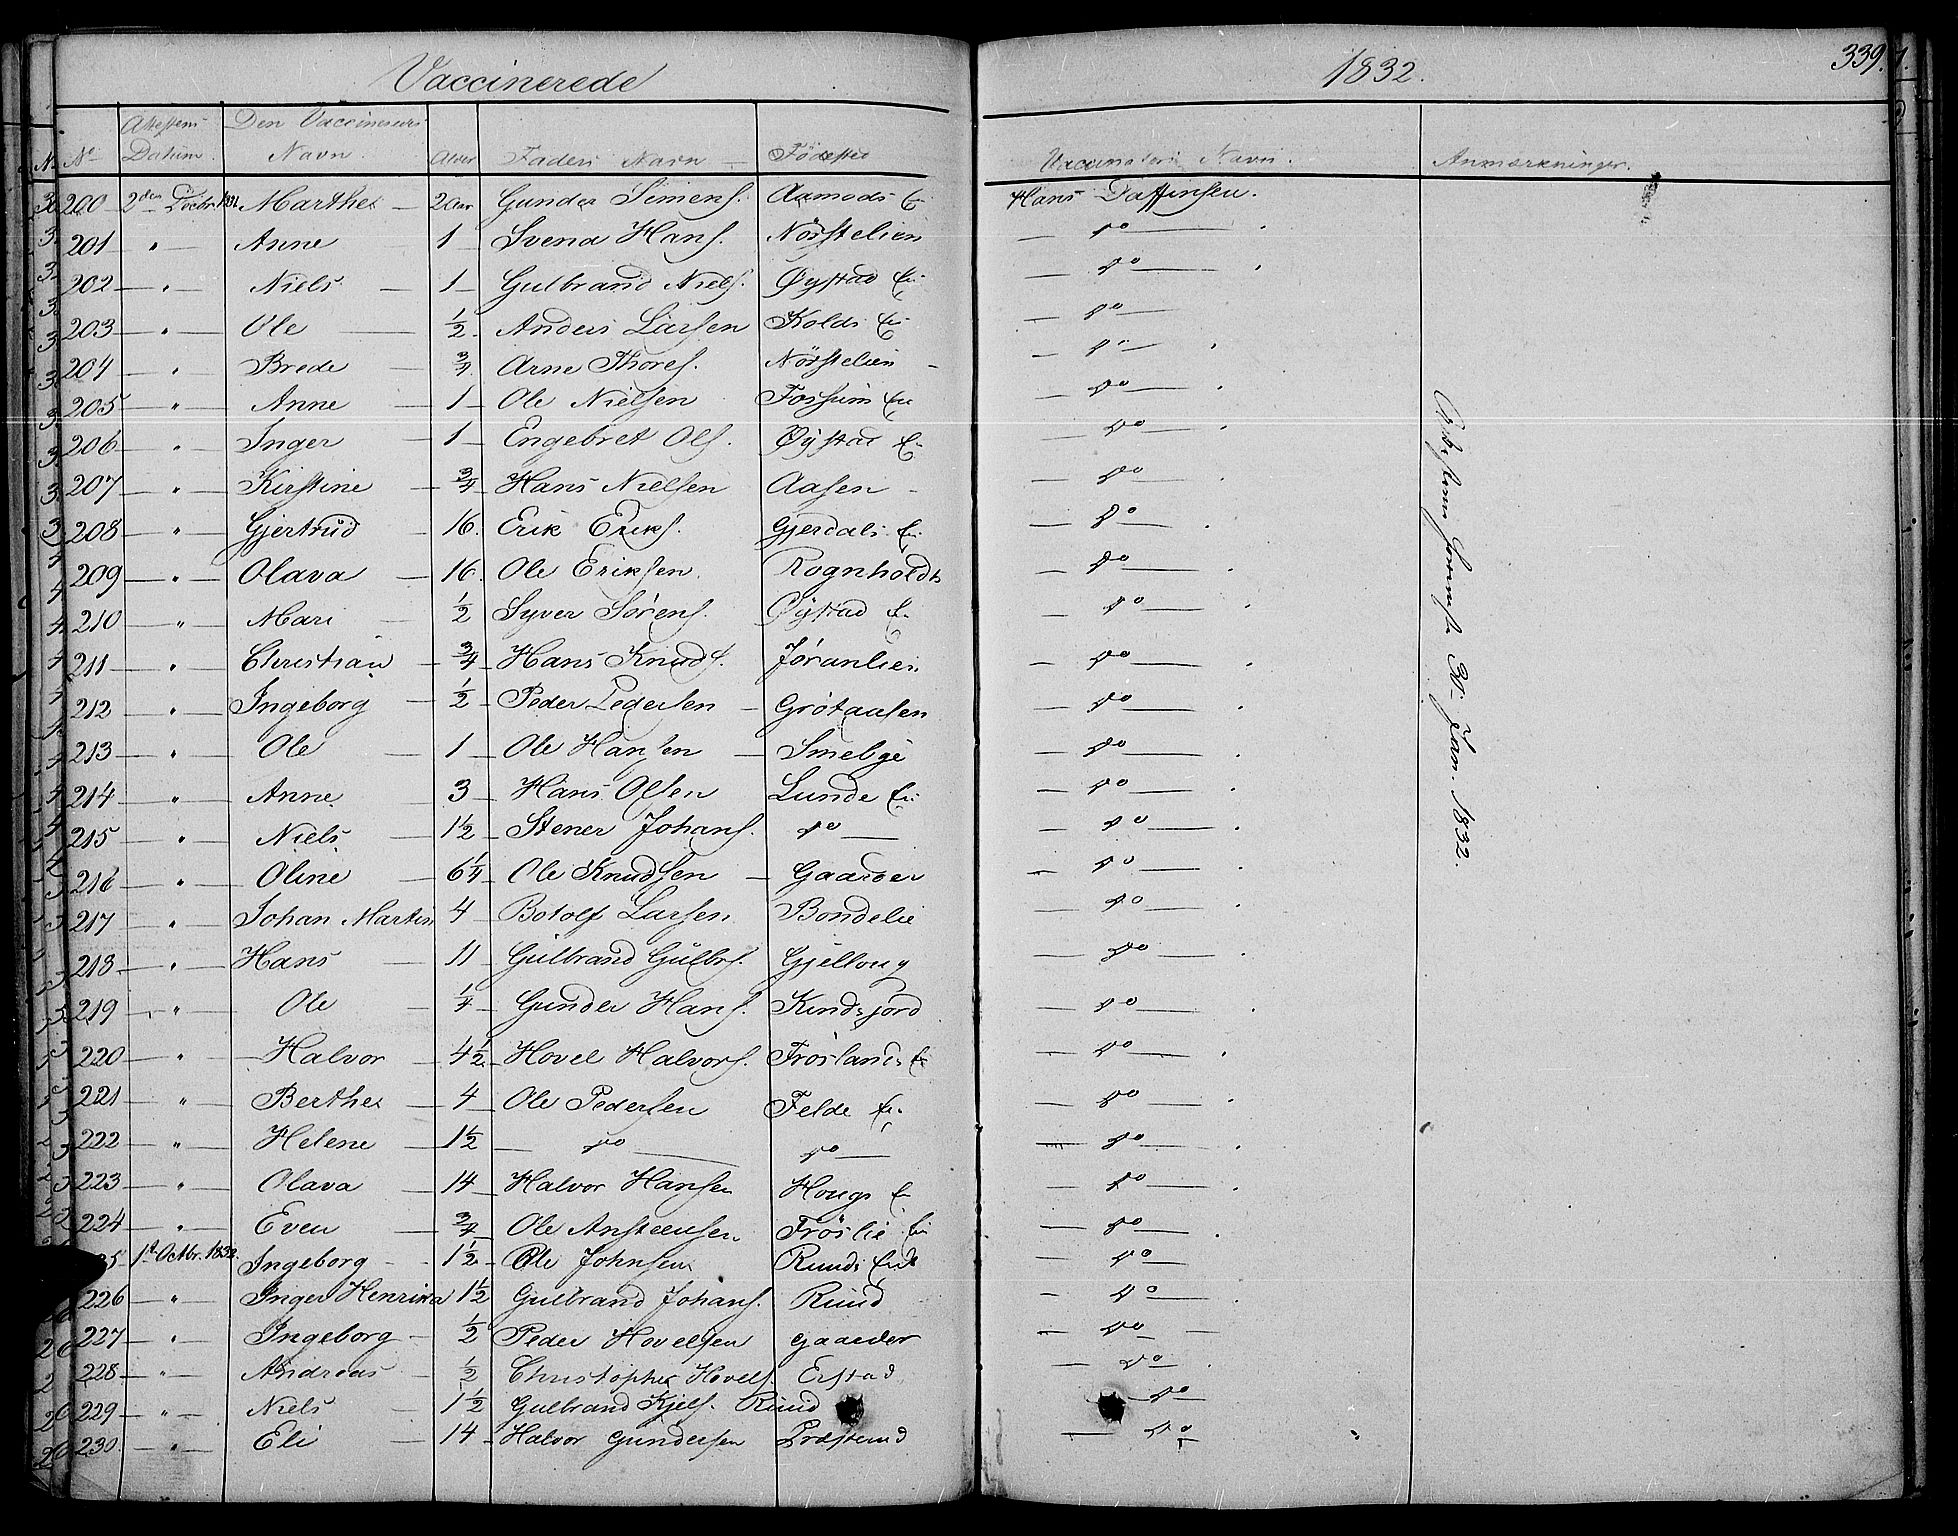 Vaccinerede
1832.
339.
No Attestens Datum. Den Vaccineredes Navn. Alder Faders Navn Fødested Vaccinateurs Navn. Anmærkninger.
200 2den Decbr. 1831 Marthe 2 Aar Gunder Simens. Aamods E. Hans
201 " Anne 1 Svend Hans. Nørstelien do
202 " Niels 1 Gulbrand Niels. Øystad Ei do
203 " Ole ½ Anders Larsen Kolds Ei do
204 " Brede ¾ Arne Thores. Nørstelien do
205 " Anne 1 Ole Nielsen Fossum Ei do
206 " Inger 1 Engebret Ols. Øystad Ei do
207 " Kirstine ¾ Hans Nielsen Aasen do
208 " Gjertrud 16. Erik Eriks. Gjerdals Ei do
209 " Olava 16. Ole Eriksen. Rognholdt do
210 " Mari ½ Syver Sørens. Øystad Ei do
211 " Christian ¾ Hans Knuds. Jøranlien do
212 " Ingeborg ½ Peder Pedersen Grøtaasen do
213 " Ole 1 Ole Hansen Smebye do
214 " Anne 3 Hans Olsen Lunde Ei do
215 " Niels 1½ Stener Johans. do do
216 " Oline 6¼ Ole Knudsen Gaarder do
217 " Johan Martin 4 Botolf Larsen Bondelie do
218 " Hans 11 Gulbrand Gulbr. Gjelloug do
219 " Ole ¼ Gunder Hans. Kindsjord do
220 " Halvor 4½ Hovel Halvors. Frøslands Ei do
221 " Berthe 4 Ole Pedersen Felde Ei. do
222 " Helene 1½ do do do
223 " Olava 14 Halvor Hansen Hougs Ei do
224 " Even ¾ Ole Ansteensen Frøslie Ei do
1st Octbr. 1832. Ingeborg 1½ Ole Johnsen Ruuds Eie do
226 " Inger Henrika 1½ Gulbrand Johans. Ruud do
227 " Ingeborg ½ Peder Hovelsen Gaarder do
228 " Andreas ½ Christopher Hovels. Erstad do
229 " Niels 1½ Gulbrand Kjels. Ruud do
230 " Eli 14 Halvor Gundersen Præsterud do
Jan. 1832.